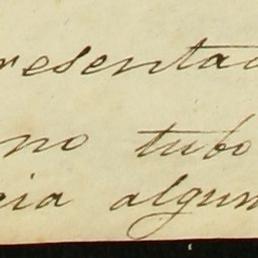 resentad
no tubo
cia algun